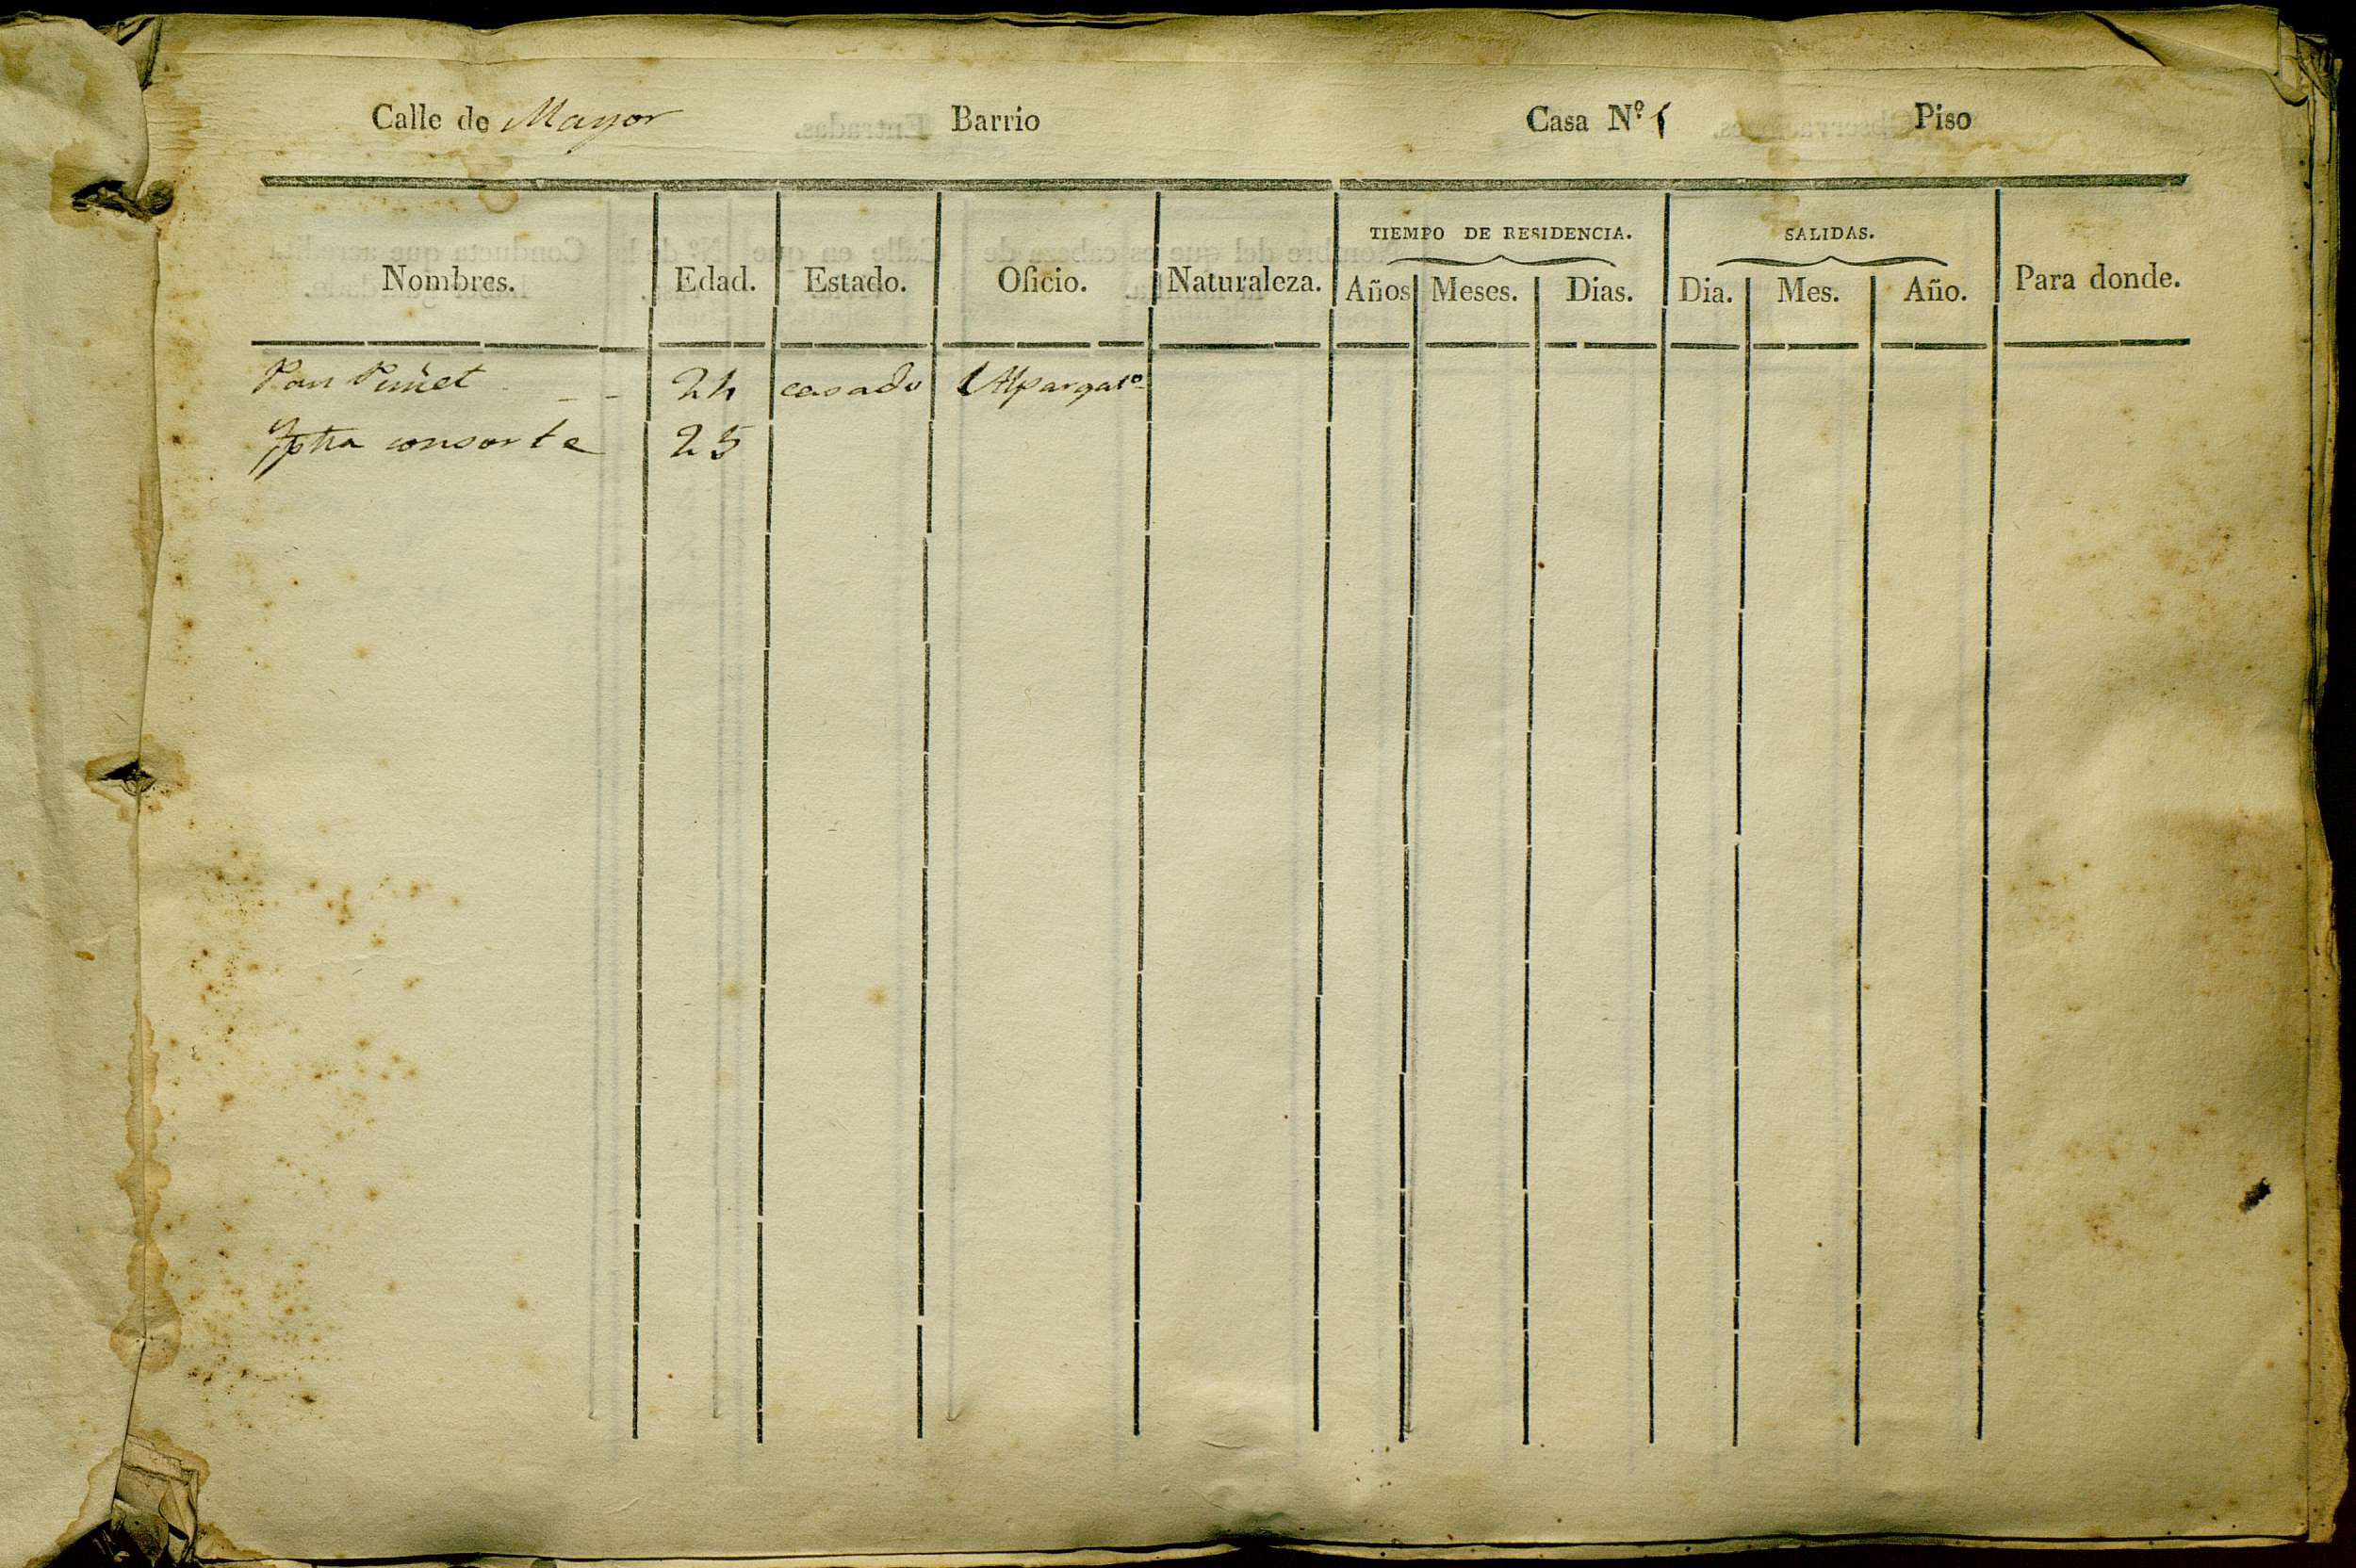 Calle de Mayor Barrio Casa Nº Piso
TIEMPO DE RESIDENCIA. SALIDAS.
Nombres. Edad. Estado. Oficio. Naturaleza. Años Meses. Dias. Dia. Mes. Año. Para donde.
24 casado Alpargato
consorte 25